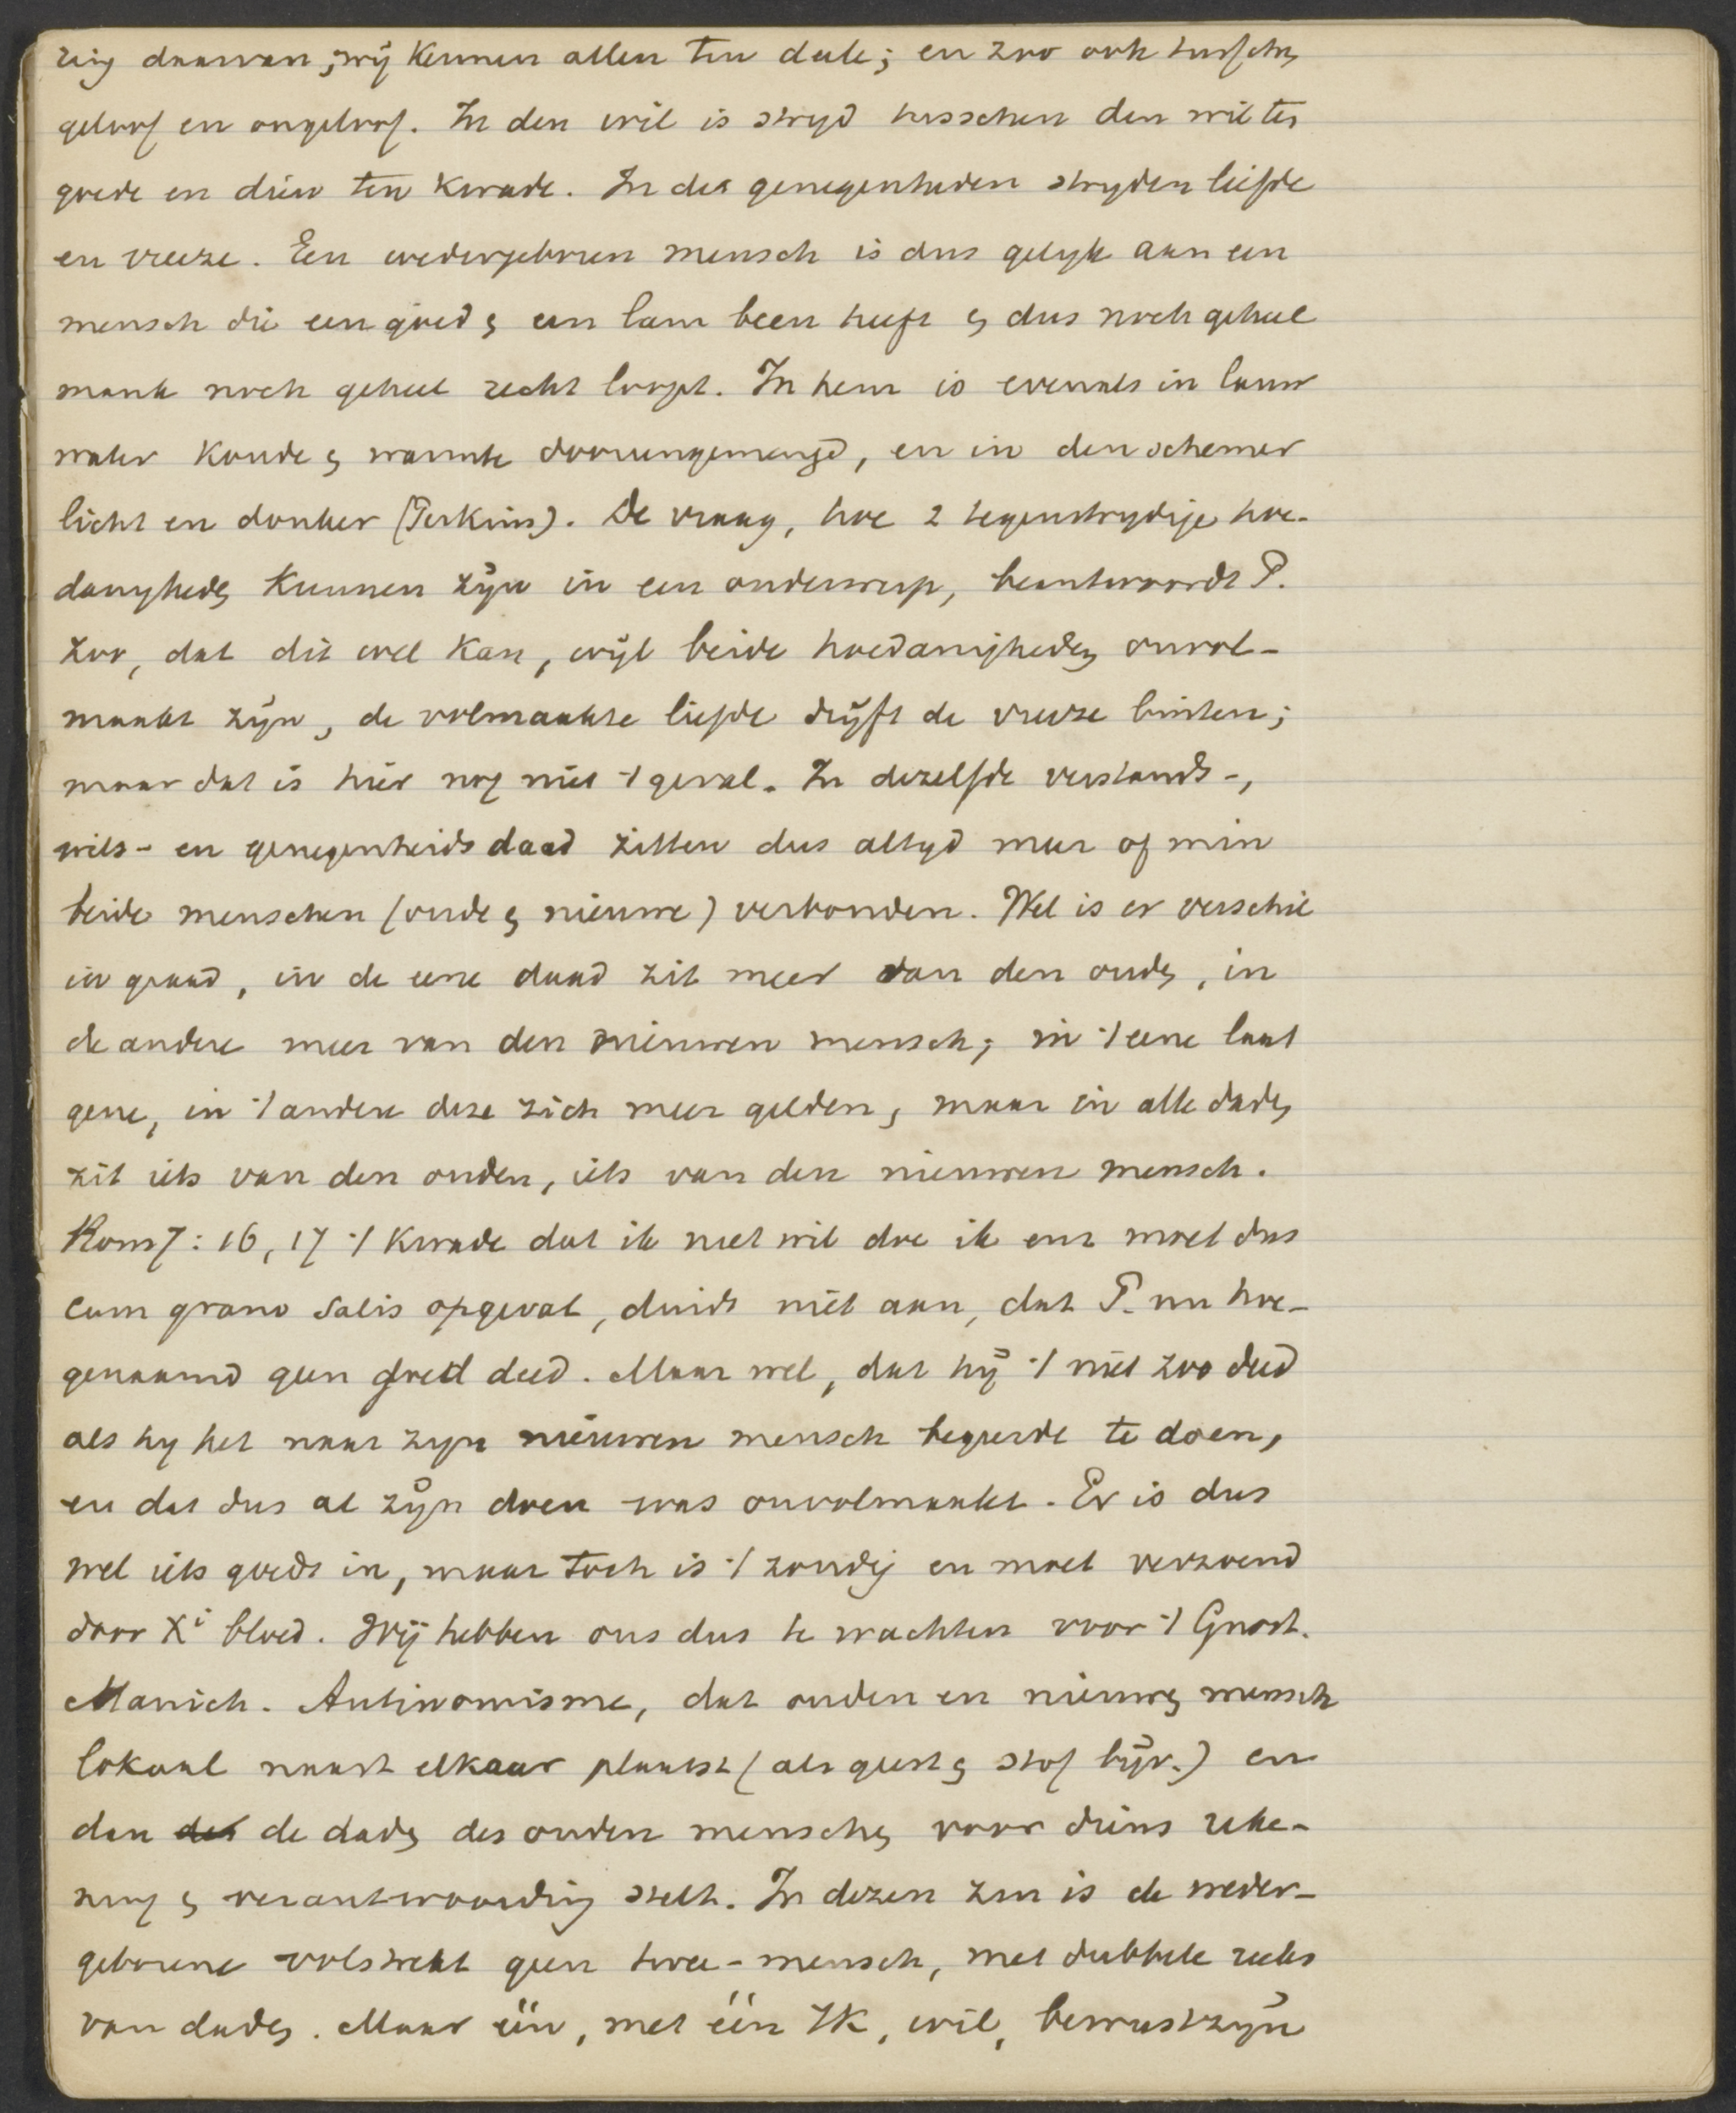 ring daarvan; wij kennen allen ten deele; en zoo ook tusschen
geloof en ongeloof. In den wil is strijd tusschen den wil ten
goede en dien ten kwade. In de genegenheden strijden liefde
en vreeze. Een wedergeboren mensch is dus gelijk aan een
mensch die een goed & een lam been heeft & dus noch geheel
mank noch geheel recht loopt. In hem is evenals in lauw
water koude & warmte dooreengemengd, en in den schemer
licht en donker (Perkins). De vraag, hoe 2 tegenstrijdige hoe-
danigheden kunnen zijn in een onderwerp, beantwoordt P.
zoo, dat dit wel kan, wijl beide hoedanigheden onvol-
maakt zijn, de volmaakte liefde drijft de vreeze buiten;
maar dat is hier nog niet 't geval. In dezelfde verstands-,
wils- en genegenheidsdaad zitten dus altijd meer of min
beide menschen (oude & nieuwe) verbonden. Wel is er verschil
in graad, in de eene daad zit meer van den ouden, in
de andere meer van den nieuwen mensch; in 't eene laat
gene, in 't andere deze zich meer gelden, maar in alle daden
zit iets van den ouden, iets van den nieuwen mensch.
Rom 7: 16, 17 't Kwade dat ik niet wil doe ik enz moet dus
cum grano salis opgevat, duidt niet aan, dat P. nu hoe-
genaamd geen goed deed. Maar wel, dat hij 't niet zoo deed
als hij het naar zijn nieuwen mensch begeerde te doen,
en dat dus al zijn doen was onvolmaakt. Er is dus
wel iets goeds in, maar toch is 't zondig en moet verzoend
door Xi bloed. Wij hebben ons dus te wachten voor 't Gnost.
Manich. Antinomisme, dat ouden en nieuwen mensch
lokaal naast elkaar plaatst (als geest & stof bijv.) en
dan de daden des ouden menschen voor diens reke-
ning & verantwoording stelt. In dezen zin is de weder-
geborene volstrekt geen twee-mensch, met dubbele reeks
van daden. Maar één, met één Ik, wil, bewustzijn